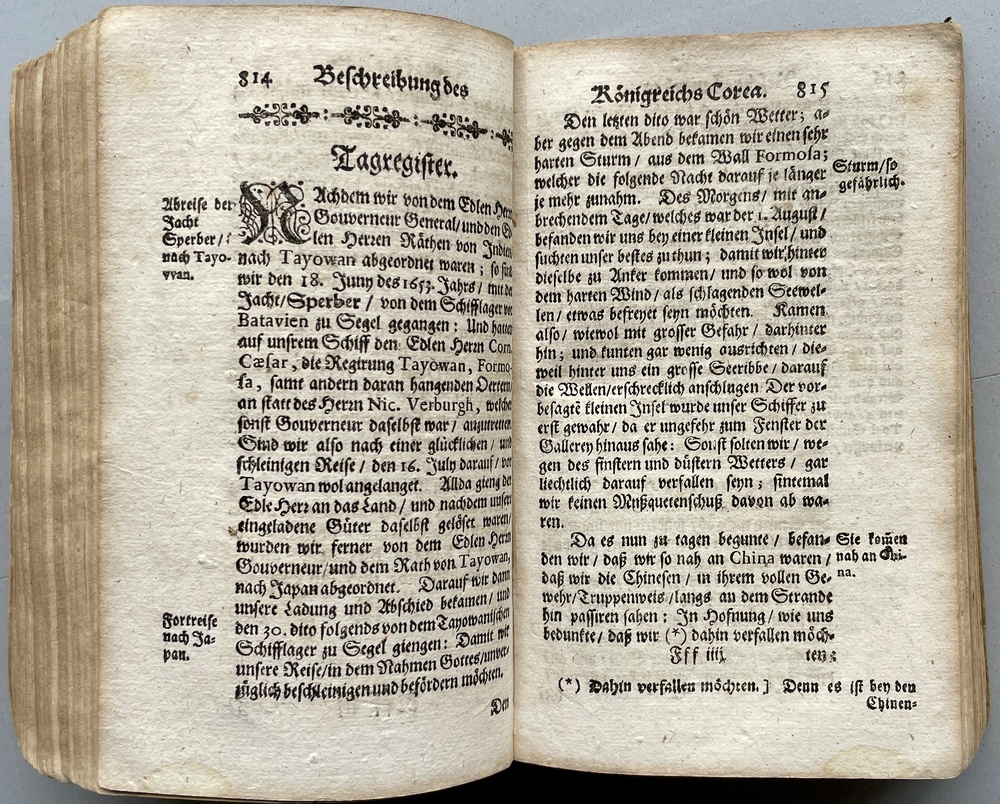 814 Beschreibung des
Tagregister.
Abreise der
Jacht
Sperber/
nach Tayo-
wan.
NAchdem wir von dem Edlen Herrn
Gouverneur General/und den Ed
len Herren Räthen von Indien
nach Tayowan abgeordnet waren; so sind
wir den 18. Juny des 1653. Jahrs/ mit der
Jacht/Sperber/ von dem Schifflager vor
Batavien zu Segel gegangen: Und hatten
auf unsrem Schiff den Edlen Herrn Corn.
Cæsar, die Regirung Tayowan, Formo-
sa, samt andern daran hangenden Oertern
an statt des Herrn Nic. Verburgh, welcher
sonst Gouverneur daselbst war/ anzutretten.
Sind wir also nach einer glücklichen/ und
schleinigen Reise/ den 16. July darauf/ vor
Tayowan wol angelanget. Allda gieng der
Edle Herr an das Land/ und nachdem unsere
eingeladene Güter daselbst gelöset waren/
wurden wir ferner von dem Edlen Herrn
Gouverneur/und dem Rath von Tayowan,
nach Japan abgeordnet. Darauf wir dann
unsere Ladung und Abschied bekamen/ und
den 30. dito folgends von dem Tayowanischen
Schifflager zu Segel giengen: Damit wir
unsere Reise/in dem Nahmen Gottes/unver-
züglich beschleinigen und befördern möchten.
Fortreise
nach Ja-
pan.
Den
Königreichs Corea. 815
Den letzten dito war schön Wetter; a-
ber gegen dem Abend bekamen wir einen sehr
harten Sturm/ aus dem Wall Formosa;
welcher die folgende Nacht darauf je länger
je mehr zunahm. Des Morgens/ mit an-
brechendem Tage/welches war der 1. August/
befanden wir uns bey einer kleinen Insel/ und
suchten unser bestes zu thun; damit wir hinter
dieselbe zu Anker kommen/ und so wol von
dem harten Wind/ als schlagenden Seewel-
len/ etwas befreyet seyn möchten. Kamen
also/ wiewol mit grosser Gefahr/ darhinter
hin; und kunten gar wenig ausrichten/ die-
weil hinter uns ein grosse Seeribbe/ darauf
die Wellen/erschrecklich anschlugen Der vor-
besagte kleinen Insel wurde unser Schiffer zu
erst gewahr/ da er ungefehr zum Fenster der
Gallerey hinaus sahe: Sonst solten wir/ we-
gen des finstern und düstern Wetters/ gar
liechtlich darauf verfallen seyn; sintemal
wir keinen Mußquetenschuß davon ab wa-
ren.
Sturm/so
gefährlich.
Da es nun zu tagen begunte/ befan-
den wir/ daß wir so nah an China waren/
daß wir die Chinesen/ in ihrem vollen Ge-
wehr/Truppenweis/langs an dem Strande
hin passiren sahen: In Hofnung/ wie uns
bedunkte/ daß wir (*) dahin verfallen möch-
Sie kom̃en
nah an Chi-
na.
Fff iiij ten;
(*) Dahin verfallen möchten.] Denn es ist bey den
Chinen-